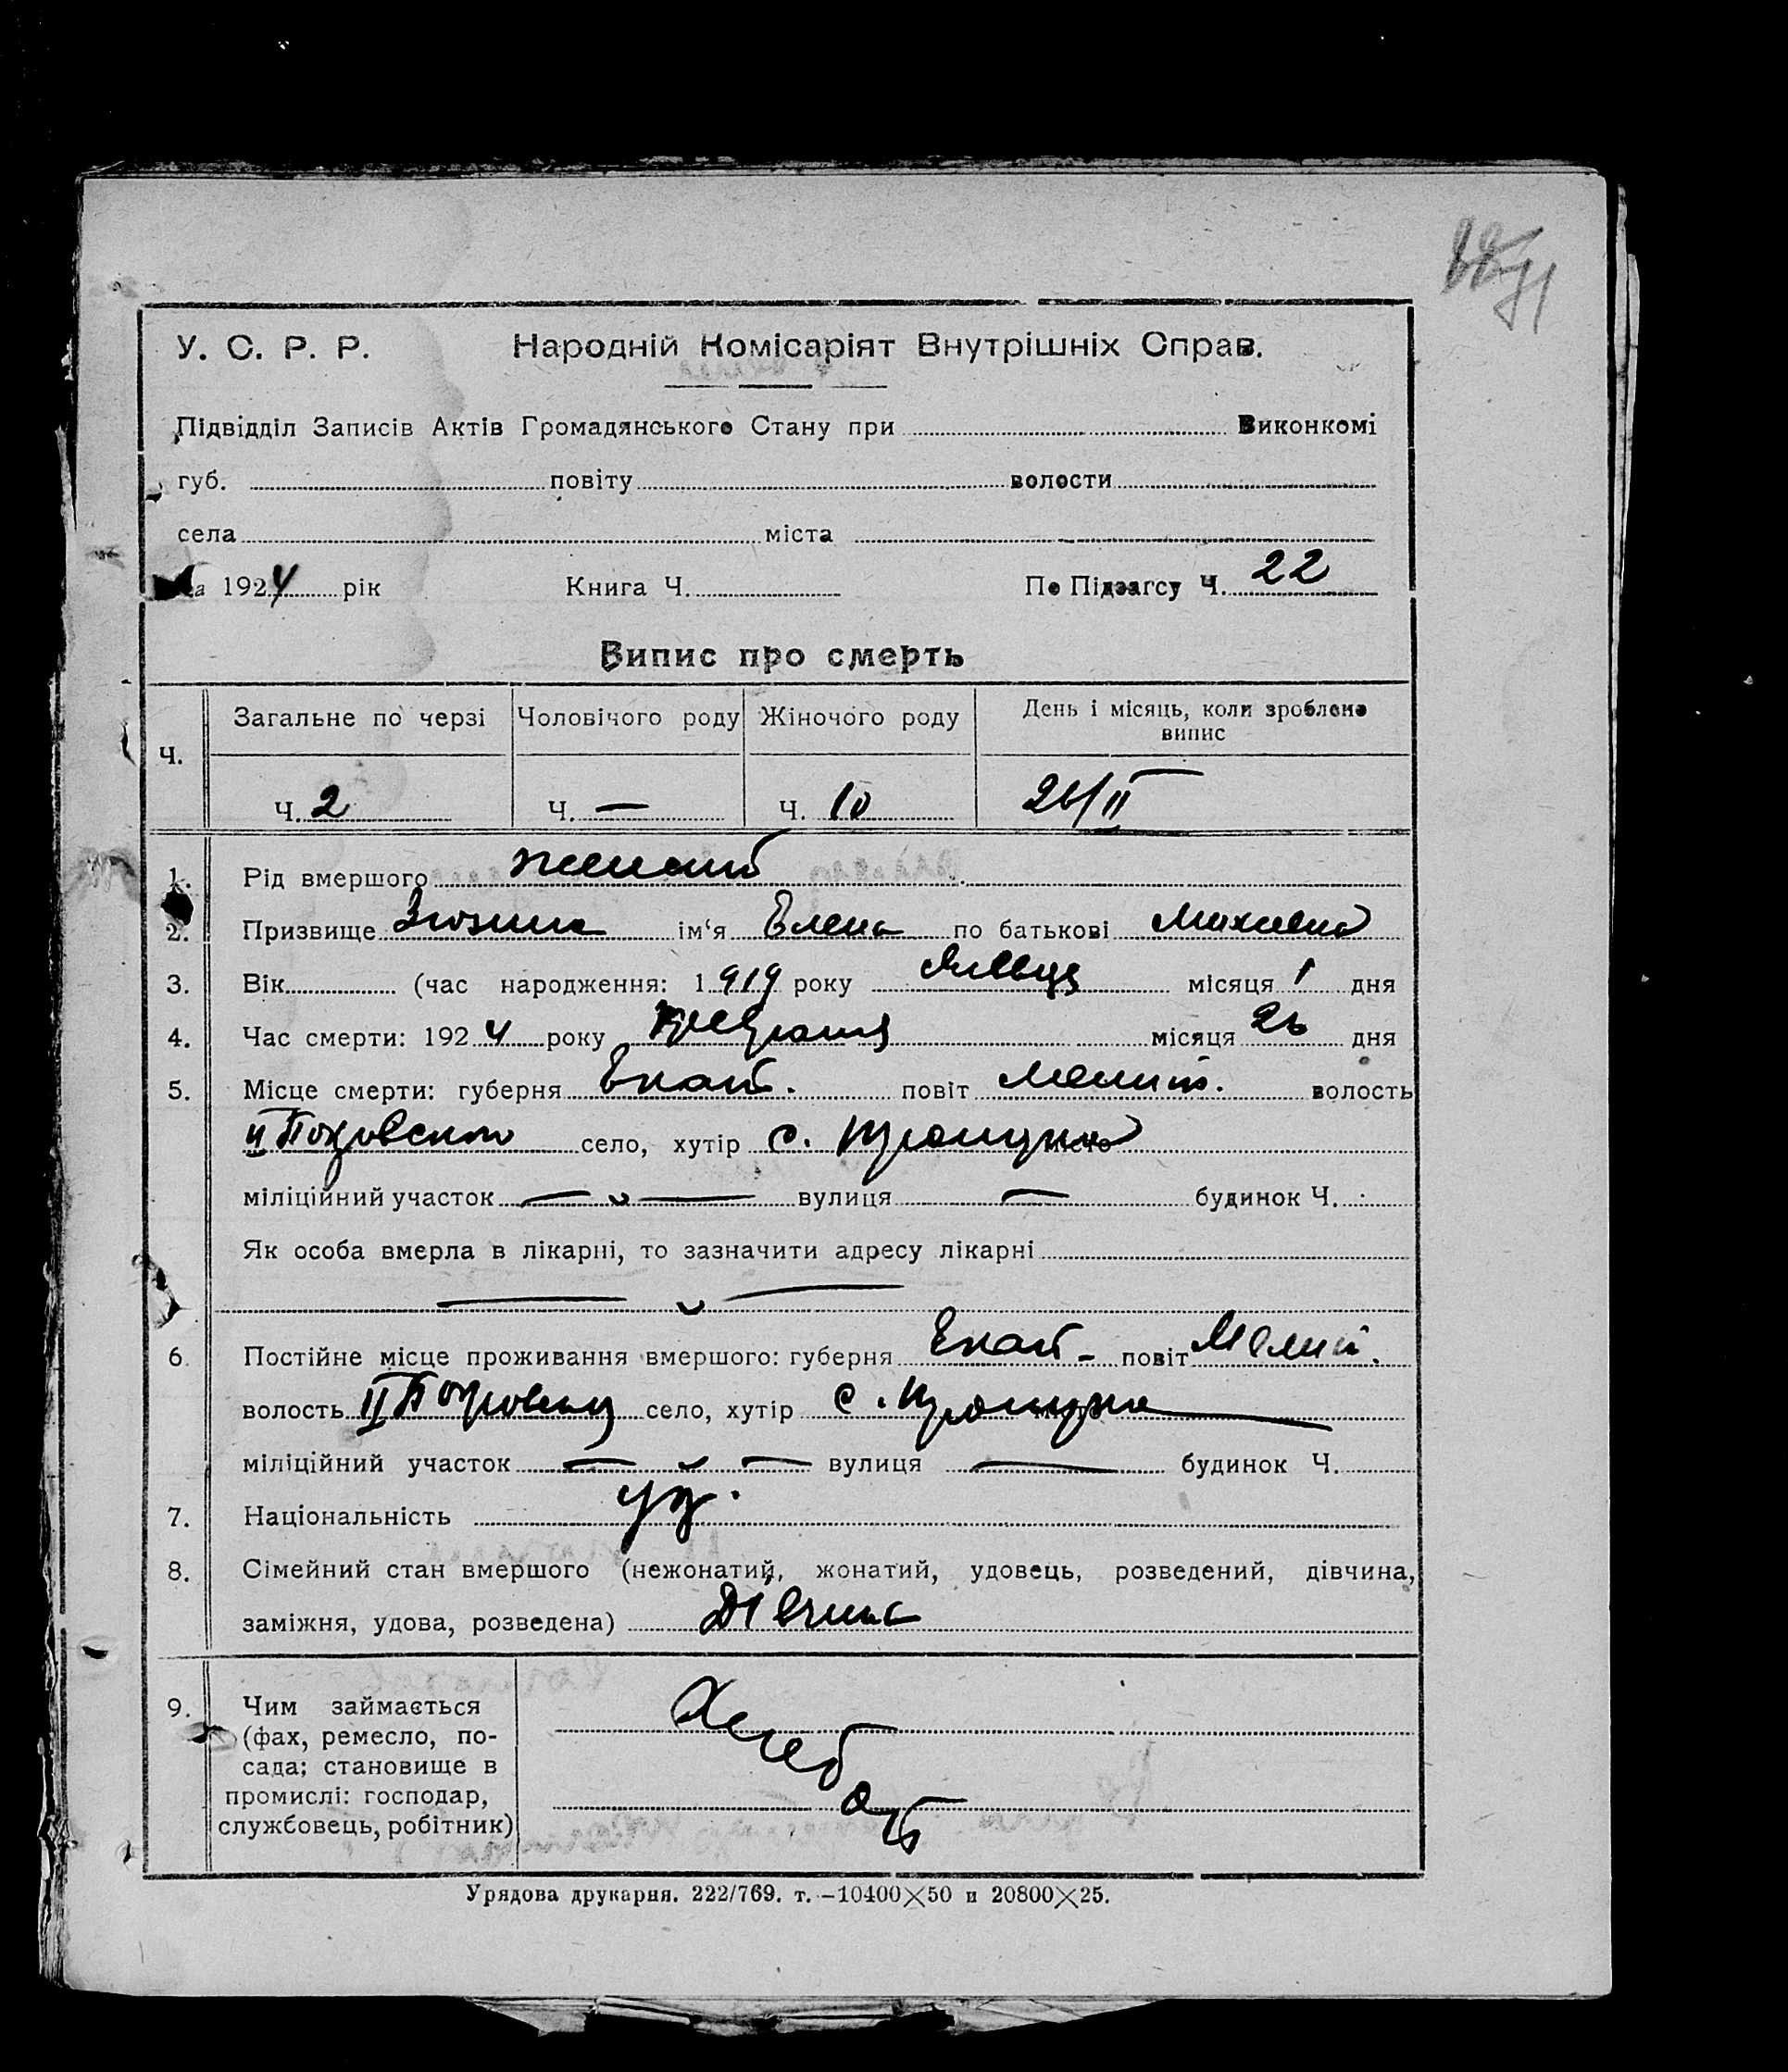 У. С. Р. Р. Народній Комісаріят Внутрішніх Справ.
Підвідділ Записів Актів Громадянського Стану при Виконкомі
губ. повіту волости
села міста
за 1924 рік Книга Ч. По Підзагсу Ч. 22
Випис про смерть
Ч. Загальне по черзі Чоловічого роду Жіночого роду День і місяць, коли зроблено
випис
Ч. 2 Ч. — Ч. 10 26/II
1. Рід вмершого
2. Призвище ім‘я Елена по батькові
3. Вік (час народження: 1919 року місяця 1 дня
4. Час смерти: 1924 року февраля місяця 26 дня
5. Місце смерти: губерня Екат. повіт Мелит. волость
II Покровской село, хутір с. місто
міліційний участок — „ — вулиця — будинок Ч.
Як особа вмерла в лікарні, то зазначити адресу лікарні
— „ —
6. Постійне місце проживання вмершого: губерня Екат. повіт Мелит.
волость II село, хутір с.
міліційний участок — „ — вулиця — будинок Ч.
7. Національність
8. Сімейний стан вмершого (нежонатий, жонатий, удовець, розведений, дівчина,
заміжня, удова, розведена) Дівчина
9. Чим займається
(фах, ремесло, по-
сада; становище в
промислі: господар,
службовець, робітник)
Хлебороб
Урядова друкарня. 222/769. т. —10400×50 и 20800×25.